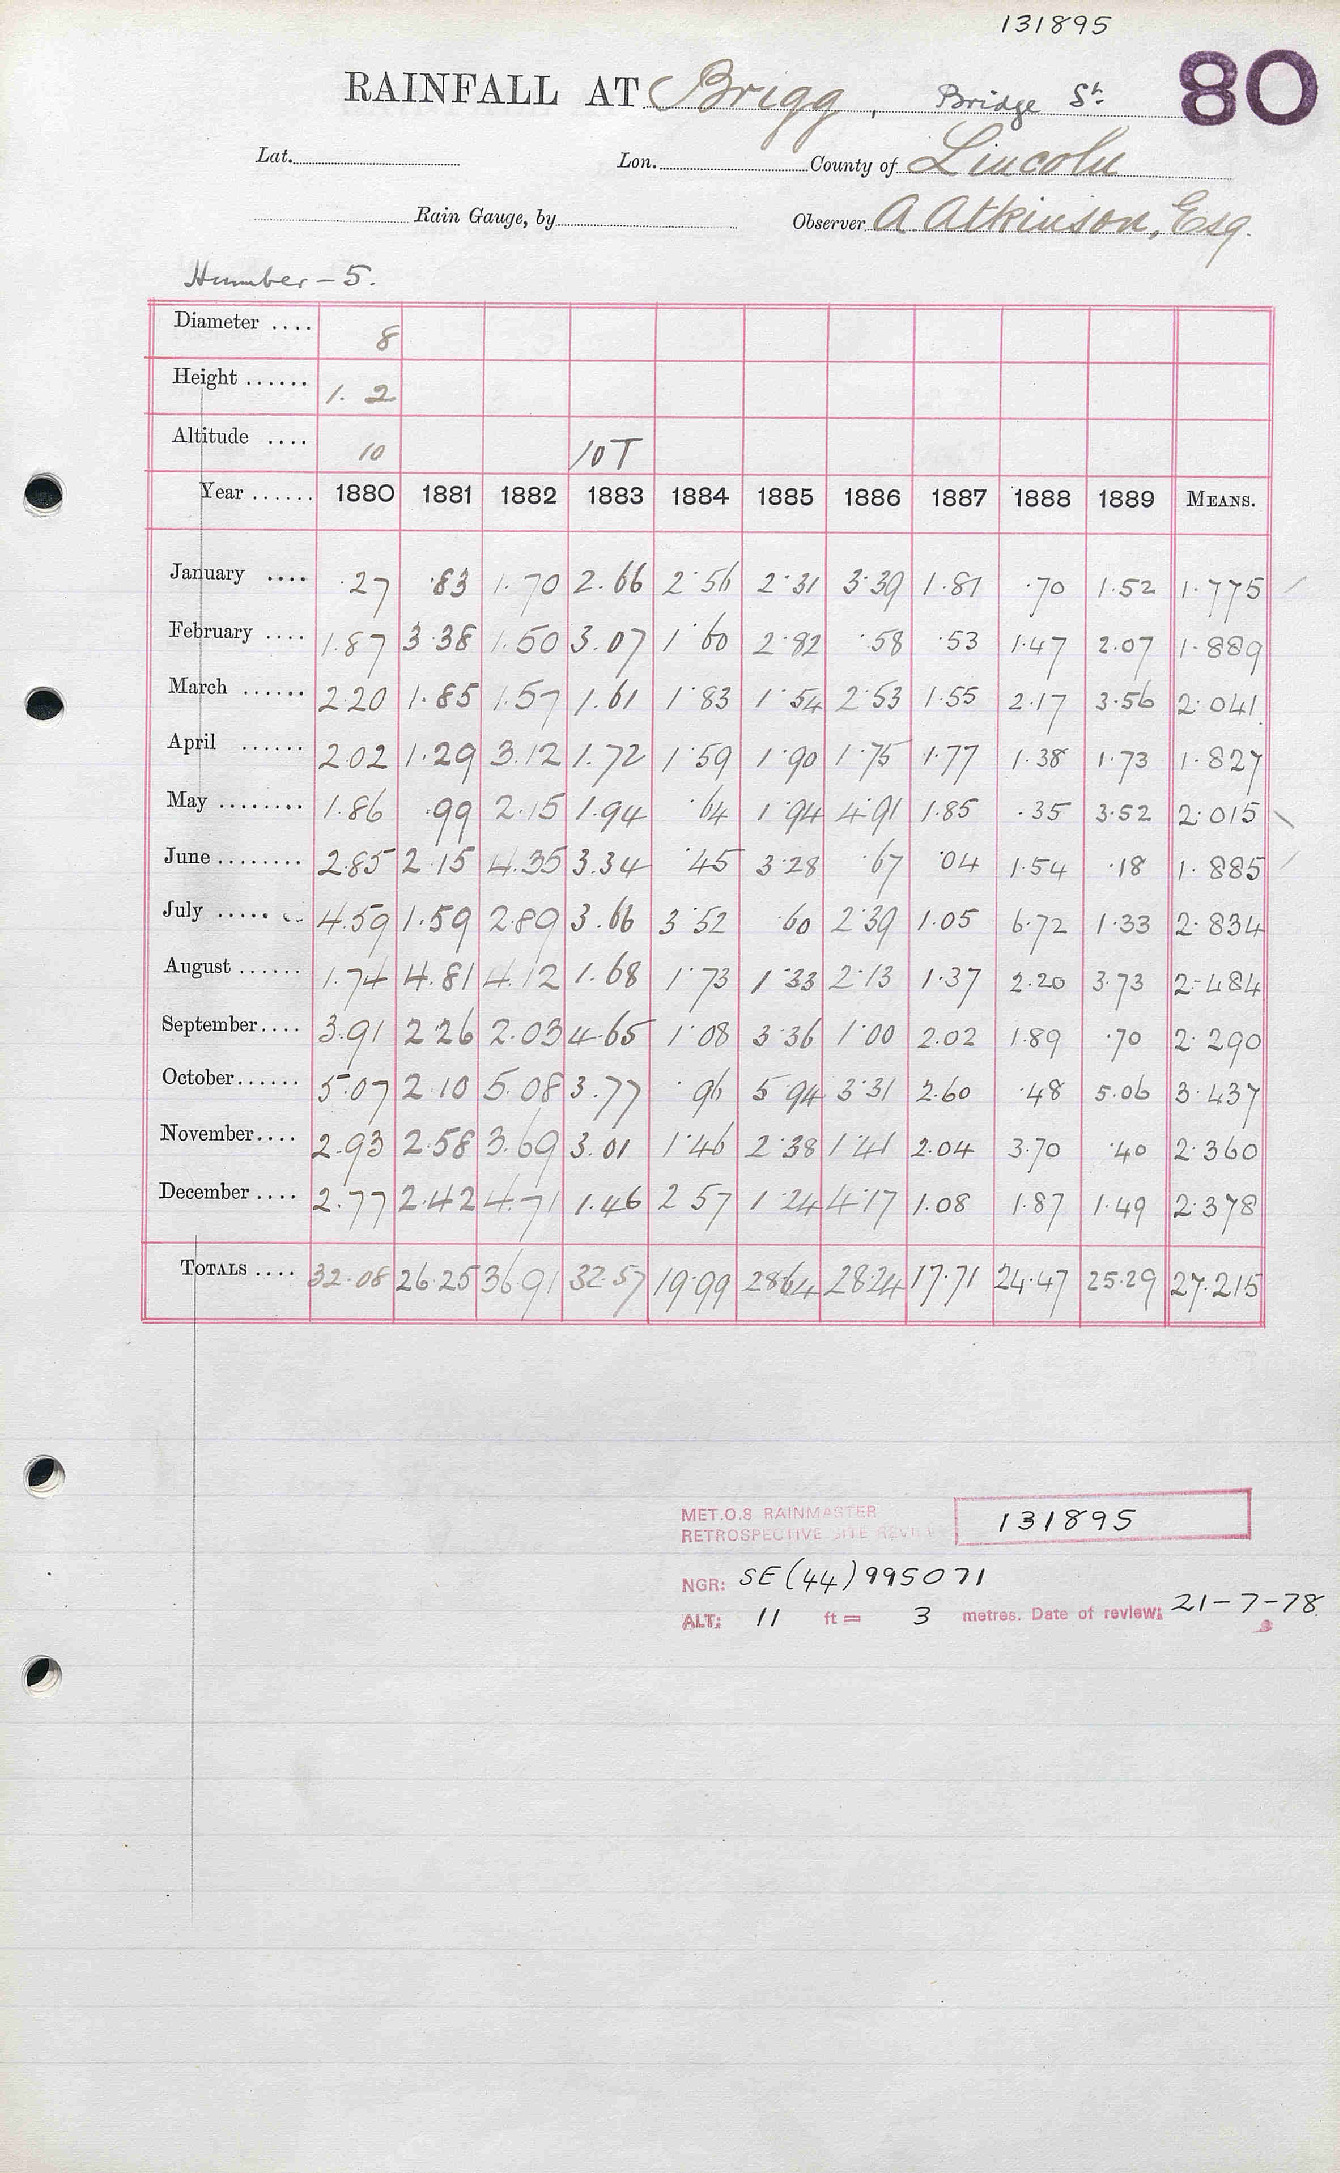 131895
RAINFALL AT Brigg, Bridge St. 80
Lat. Lon. County of Lincoln
Rain Gauge, by Observer A Atkinson, Esq.
Humber - 5.
Diameter .... 8
Height ...... 1. 2
Altitude .... 10 10T
Year ...... 1880 1881 1882 1883 1884 1885 1886 1887 1888 1889 MEANS.
January .... .27 .83 1.70 2.66 2.56 2.31 3.39 1.81 .70 1.52 1.775
February .... 1.87 3.38 1.50 3.07 1.60 2.82 .58 .53 1.47 2.07 1.889
March ...... 2.20 1.85 1.57 1.61 1.83 1.54 2.53 1.55 2.17 3.56 2.041
April ...... 2.02 1.29 3.12 1.72 1.59 1.90 1.75 1.77 1.38 1.73 1.827
May ........ 1.86 .99 2.15 1.94 .64 1.94 4.91 1.85 .35 3.52 2.015
June ........ 2.85 2.15 4.35 3.34 .45 3.28 .67 .04 1.54 .18 1.885
July ..... 4.59 1.59 2.89 3.66 3.52 .60 2.39 1.05 6.72 1.33 2.834
August ...... 1.74 4.81 4.12 1.68 1.73 1.33 2.13 1.37 2.20 3.73 2.484
September.... 3.91 2.26 2.03 4.65 1.08 3.36 1.00 2.02 1.89 .70 2.290
October...... 5.07 2.10 5.08 3.77 .96 5.94 3.31 2.60 .48 5.06 3.437
November.... 2.93 2.58 3.69 3.01 1.46 2.38 1.41 2.04 3.70 .40 2.360
December .... 2.77 2.42 4.71 1.46 2.57 1.24 4.17 1.08 1.87 1.49 2.378
TOTALS .... 32.08 26.25 36.91 32.57 19.99 28.64 28.24 17.71 24.47 25.29 27.215
MET.O.8 RAINMASTER
RETROSPECTIVE SITE REVIEW 131895
NGR: SE(44)995071
ALT: 11 ft = 3 metres. Date of review: 21-7-78